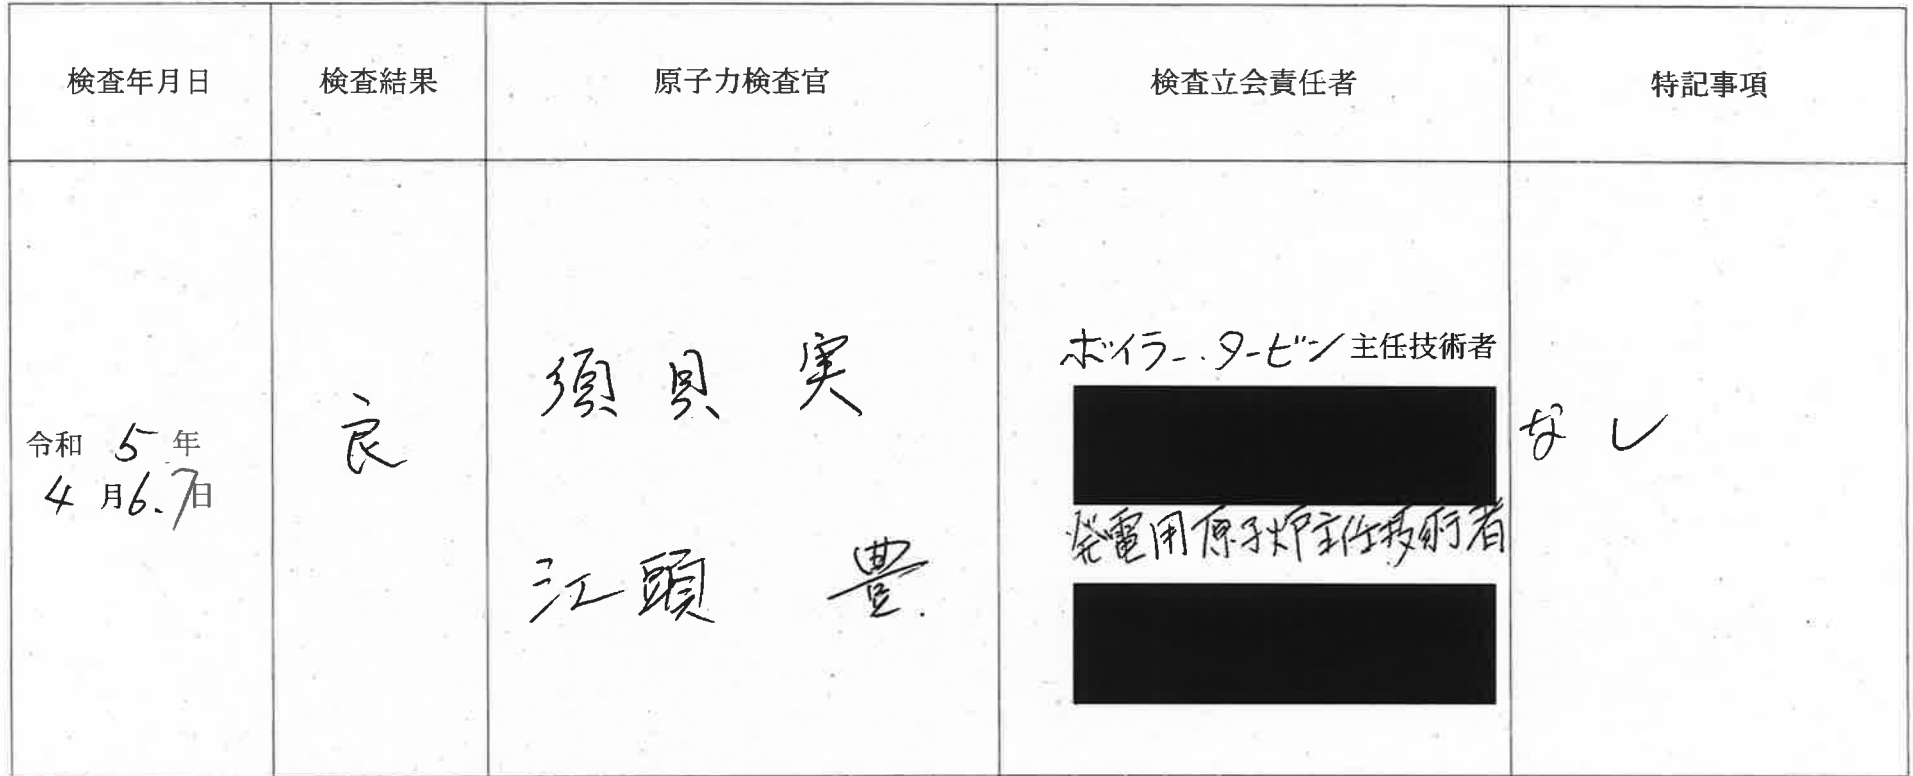 検査年月日
検査結果
原子力検査官
検査立会責任者
特記事項
令和 5 年
4 月 6.7日
良
須貝 実
江頭 豊
ボイラー・タービン主任技術者
発電用原子炉主任技術者
なし